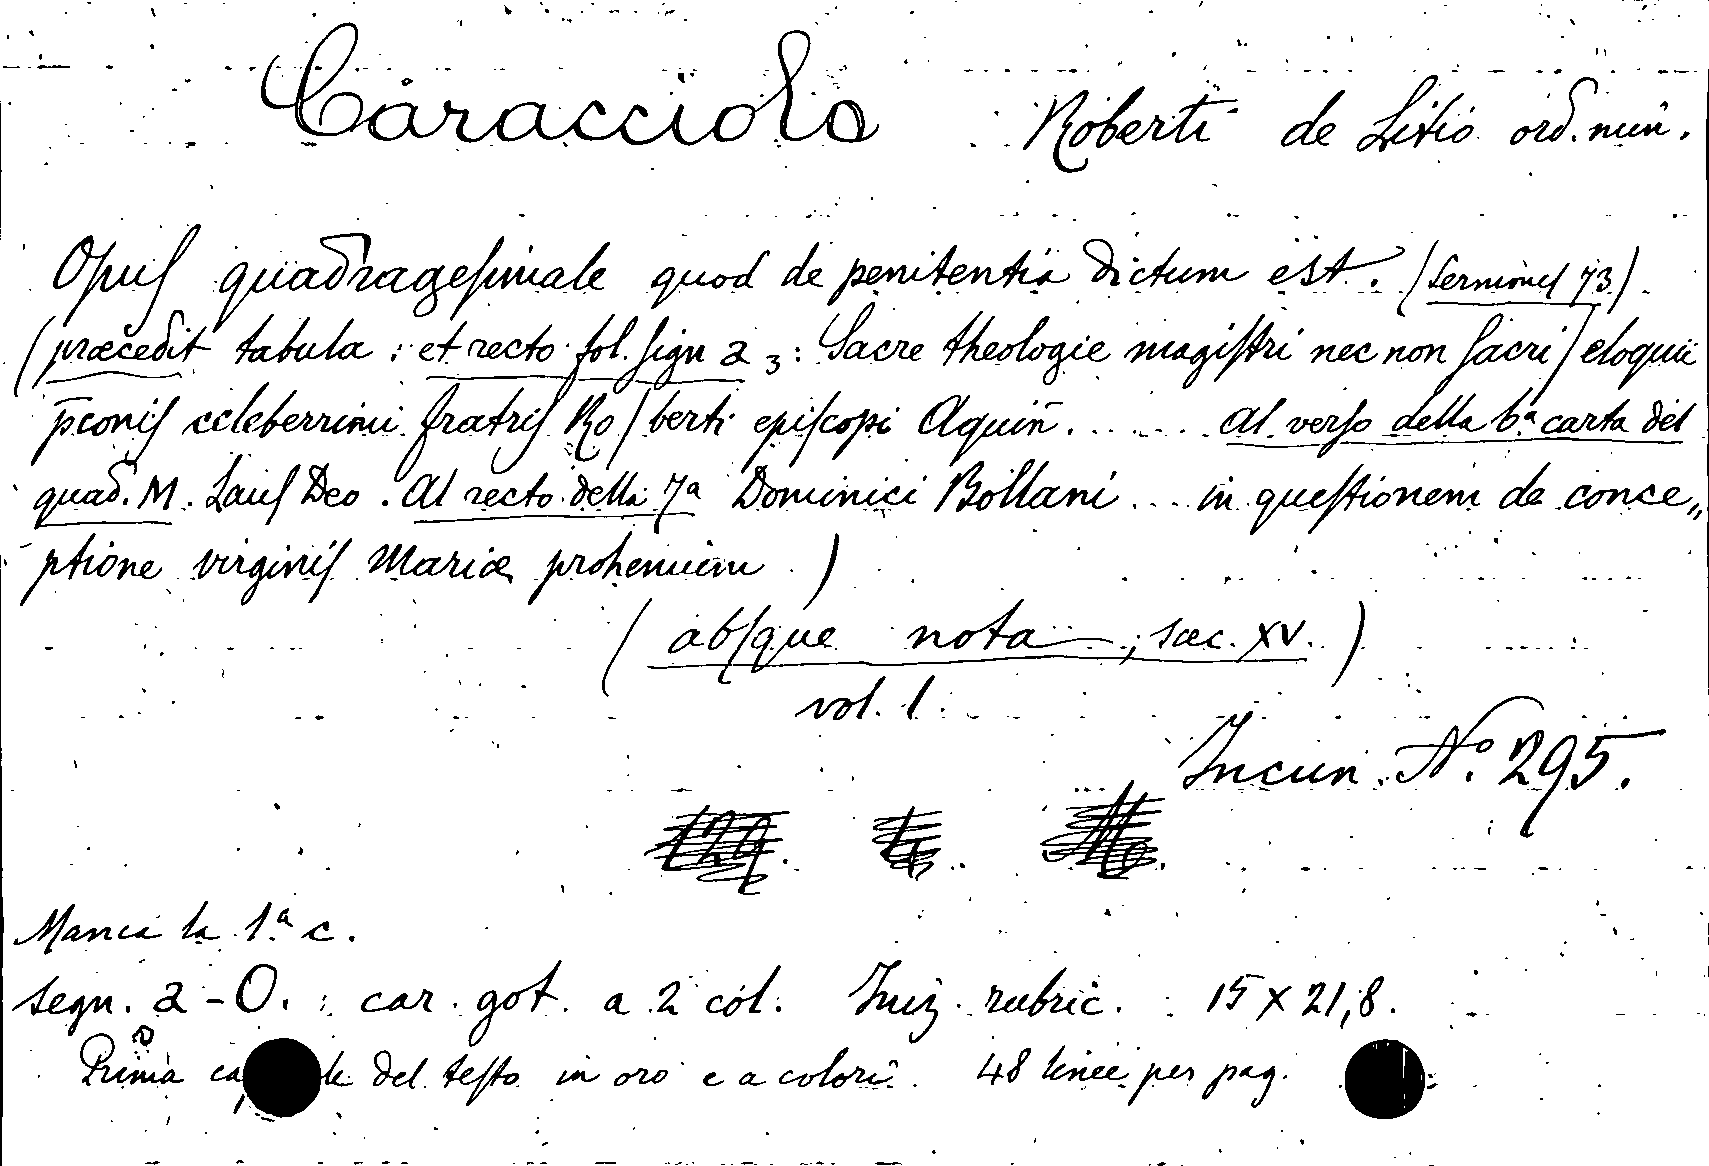 Caracciolo Roberti de Litio ord. min.
Opuſ quadrageſimale quod de penitentia dictum est. (Sermoneſ 73)
(præcedit tabula: et recto fol. ſign a 3: Sacre theologie magiſtri nec non ſacri / eloquii
p̄coniſ celeberrimi fratriſ Ro / berti epiſcopi Aquiñ. ...... Al verſo della 6ª carta del
quad. M. Lauſ Deo. Al recto della 7ª Dominici Bollani ... in queſtionem de conce„
ptione virginiſ Mariæ prohemium)
(abſque nota —; sæc. XV.)
vol. 1.
Incun. Nº. 295.
Manca la 1ª c.
segn. a - O. : car. got. a 2 col. Iniz. rubric. 15 x 21,8.
Prima del teſto in oro e a colori. 48 linee per pag.